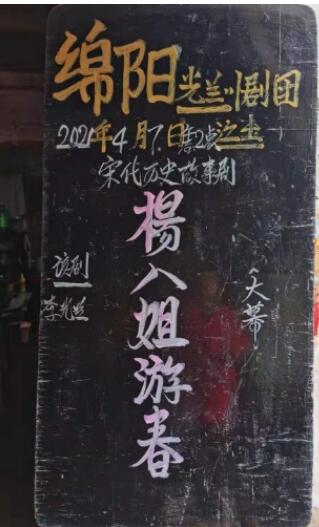 绵阳光兰川剧团
2021年4月7日
宋代历史故事剧
楊八姐游春
该剧
李光兰
大幕